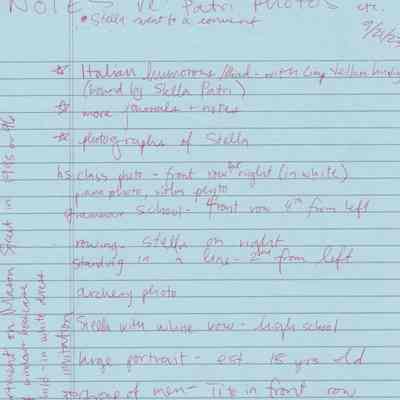 NOTES re Patri Photos etc.
• Stella sent to a convent
☆ Italian humorous /
(bound by Stella Patri)
☆ more journals + notes
☆ photographs of Stella
hs class photo - front row right (in white)
piano photo, violin photo
grammar school - front row 4th from left
rowing - Stella on right
standing in a line - 2nd from left
archery photo
Stella with white bow - high school
large portrait - est 18 yrs old
group of men - Tito in front row
on Mason Street in 1915 or 16
in white dress
invitation